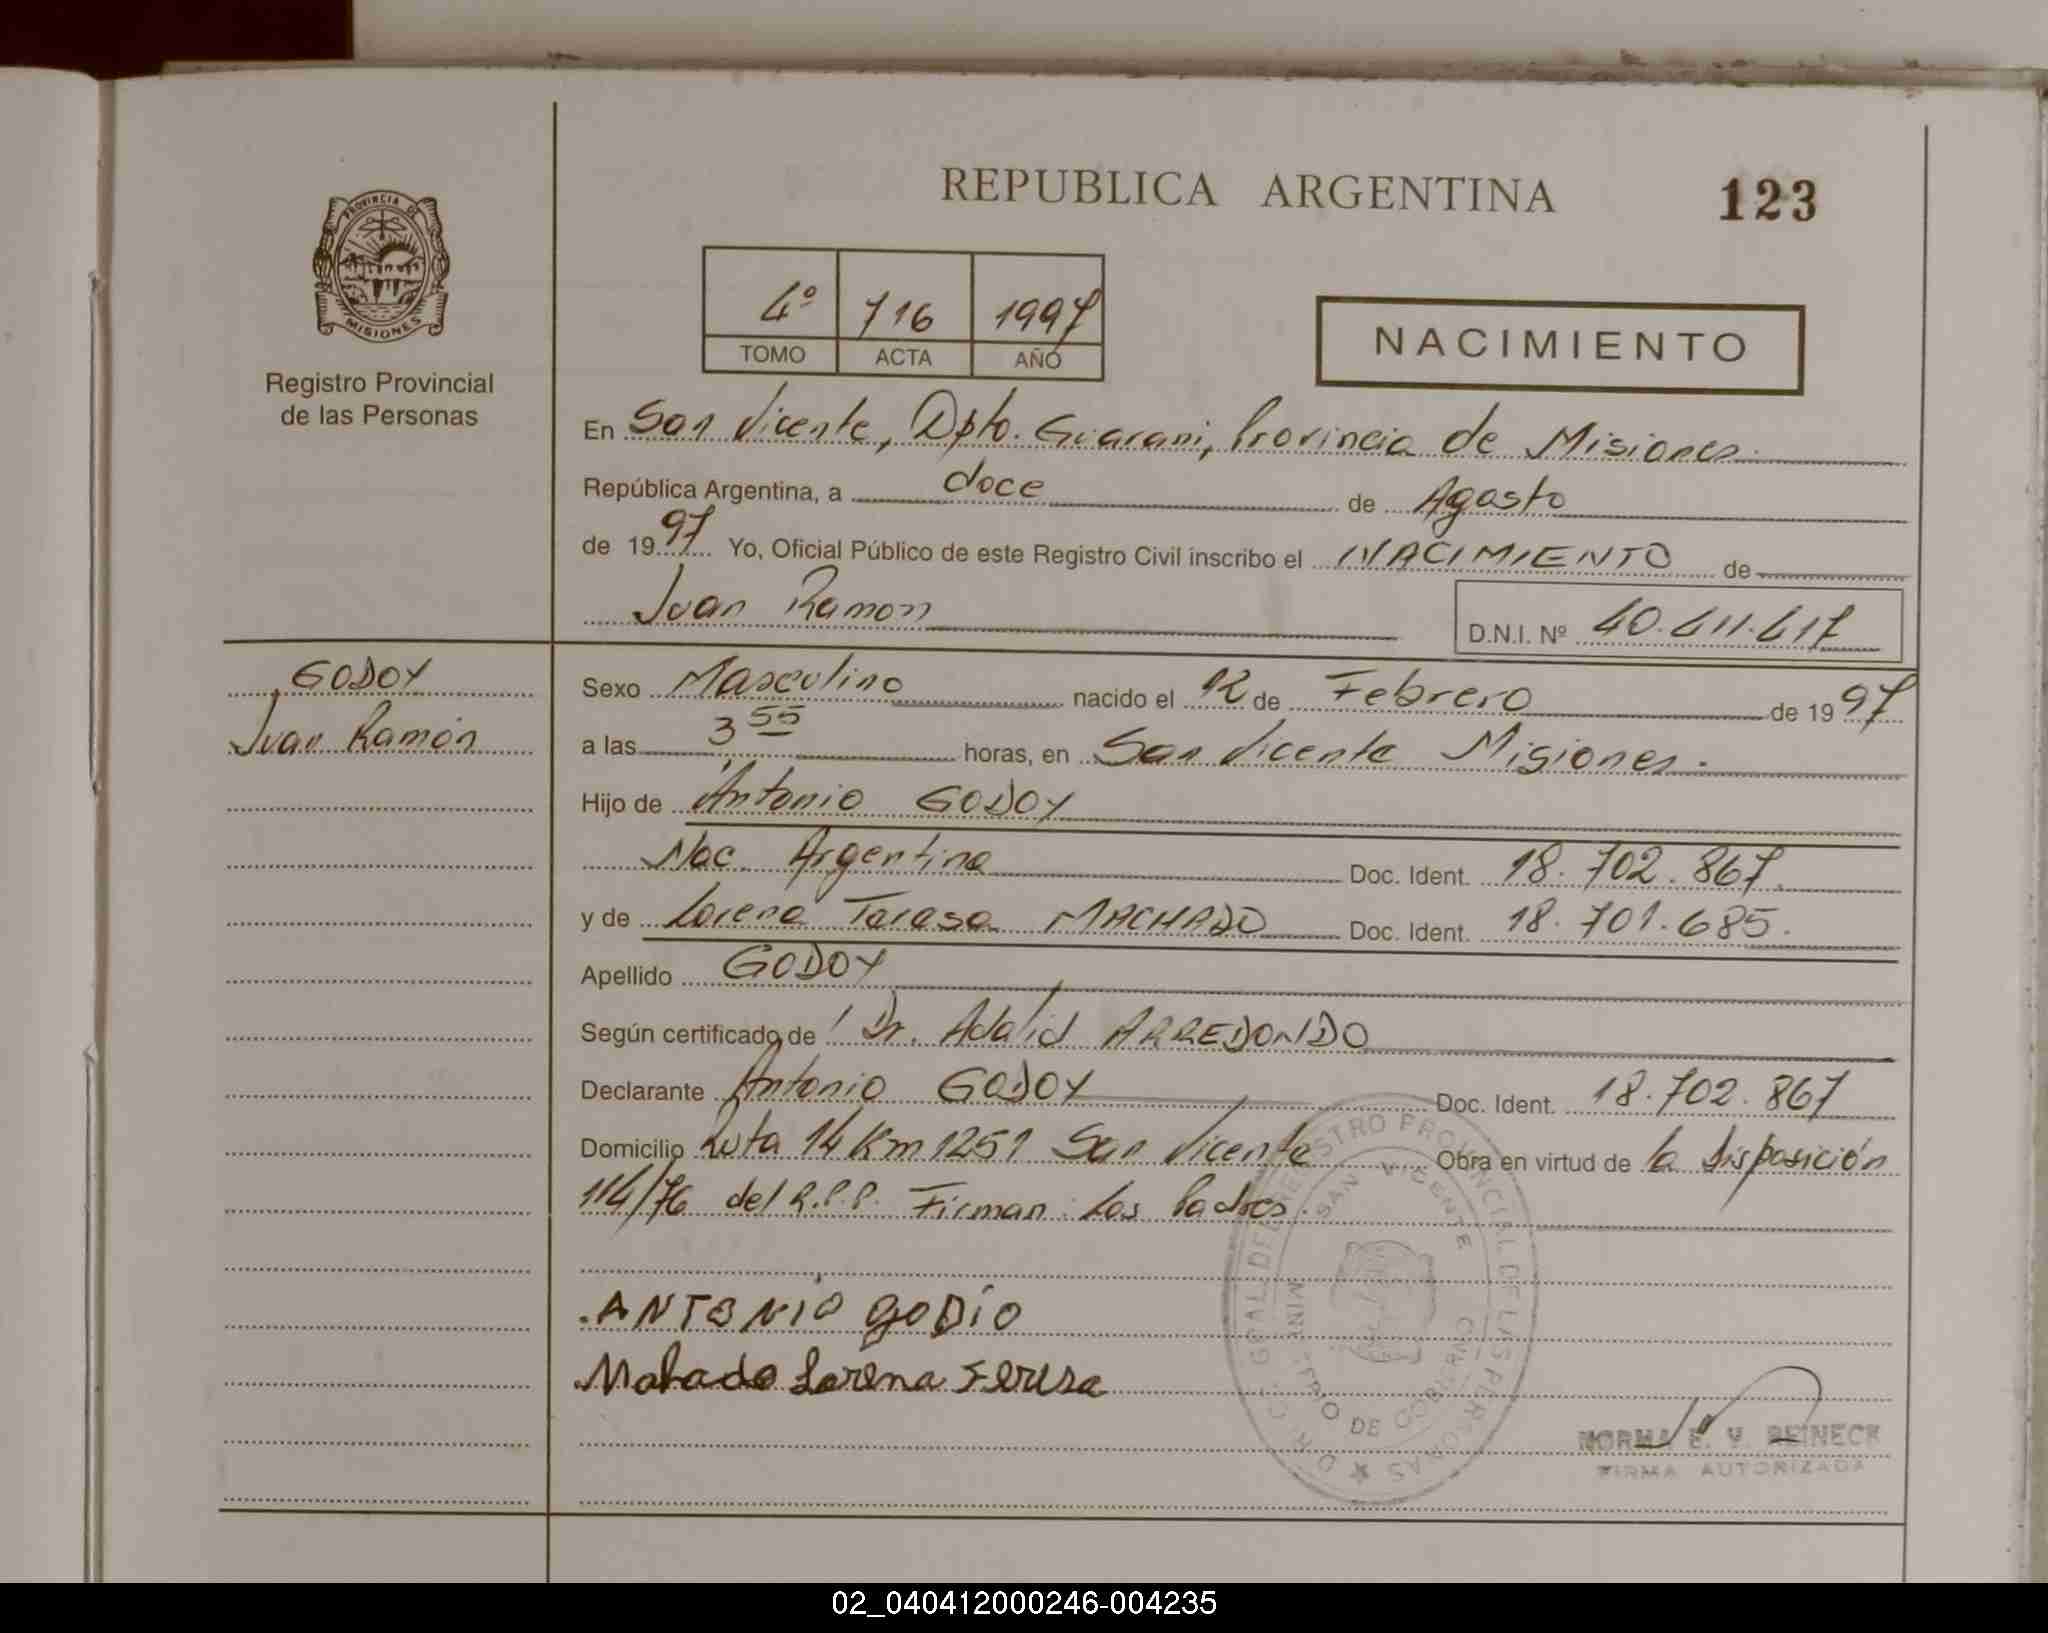 PROVINCIA DE
MISIONES
Registro Provincial
de las Personas
REPUBLICA ARGENTINA
123
4º 716 1997
TOMO ACTA AÑO
NACIMIENTO
En San Vicente, Dpto. Guarani, Provincia de Misiones
República Argentina, a doce de Agosto
de 1997 Yo, Oficial Público de este Registro Civil inscribo el NACIMIENTO de
Juan Ramon D.N.I. Nº 40.411.417
GODOY
Juan Ramón
Sexo Masculino nacido el 12 de Febrero de 1997
a las 3 55 horas, en San Vicente Misiones.
Hijo de Antonio GODOY
Nac. Argentina Doc. Ident. 18.702.867.
y de Lorena Taresa MACHADO Doc. Ident. 18.701.685.
Apellido GODOY
Según certificado de Dr. Adalid ARREDONDO
Declarante Antonio GODOY Doc. Ident. 18.702.867
Domicilio Ruta 14 Km 1251 San Vicente Obra en virtud de la disposición
114/76 del R.P.P. Firman: Los Padres.
ANTONIO GODIO
Mahado Lorena Feresa
DIR. GRAL. DEL REGISTRO PROVINCIAL DE LAS PERSONAS
SAN VICENTE
MINISTERIO DE GOBIERNO
NORMA E. V. REINECK
FIRMA AUTORIZADA
02_040412000246-004235